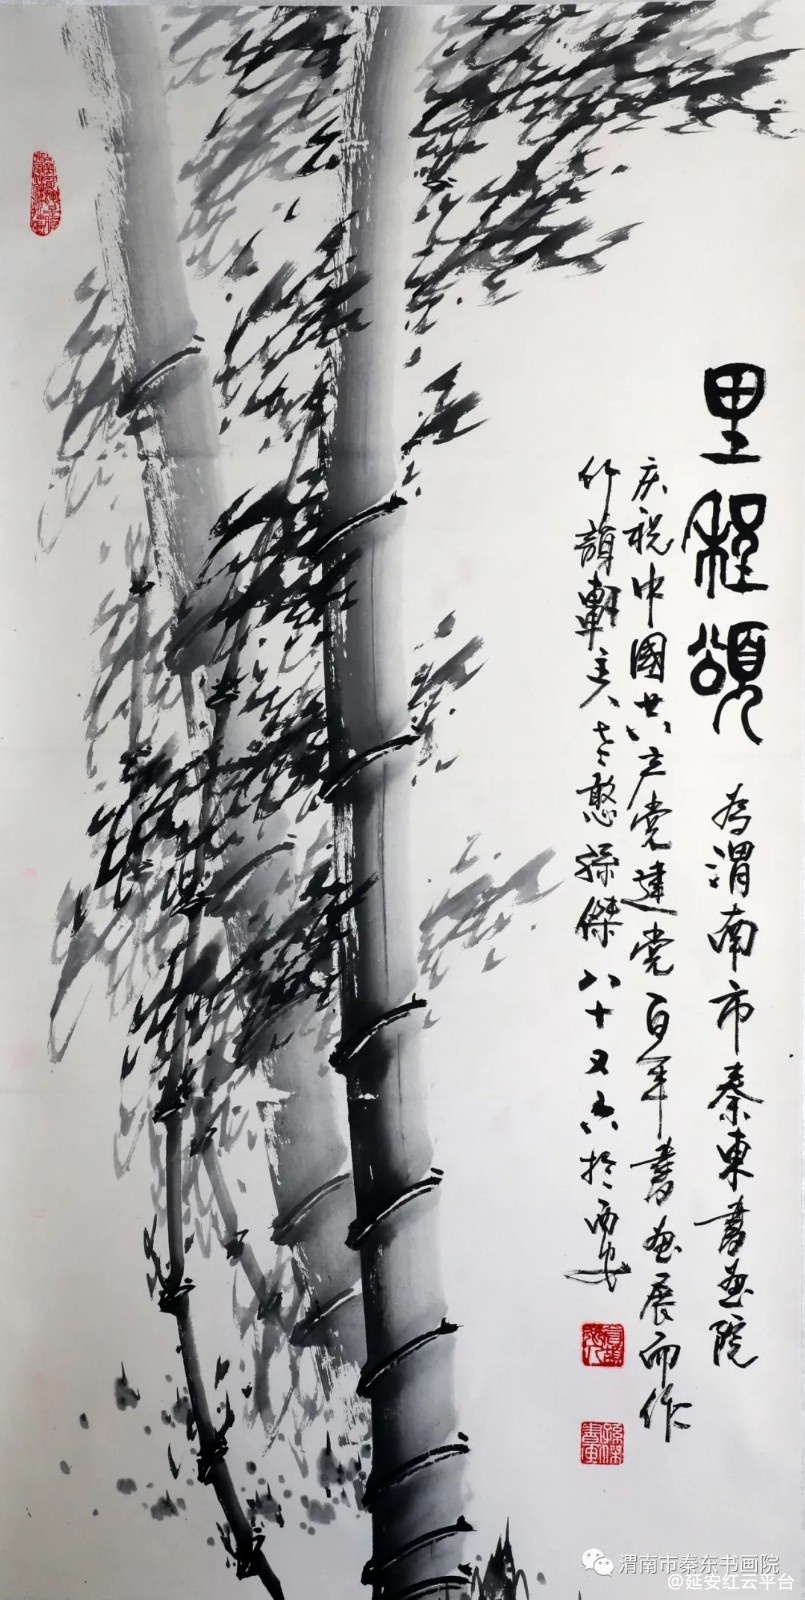 里程頌
为渭南市秦東書画院
庆祝中國共产党建党百年書画展而作
竹韻軒主人老憨孫傑八十又六於西安
渭南市秦东书画院
@延安红云平台